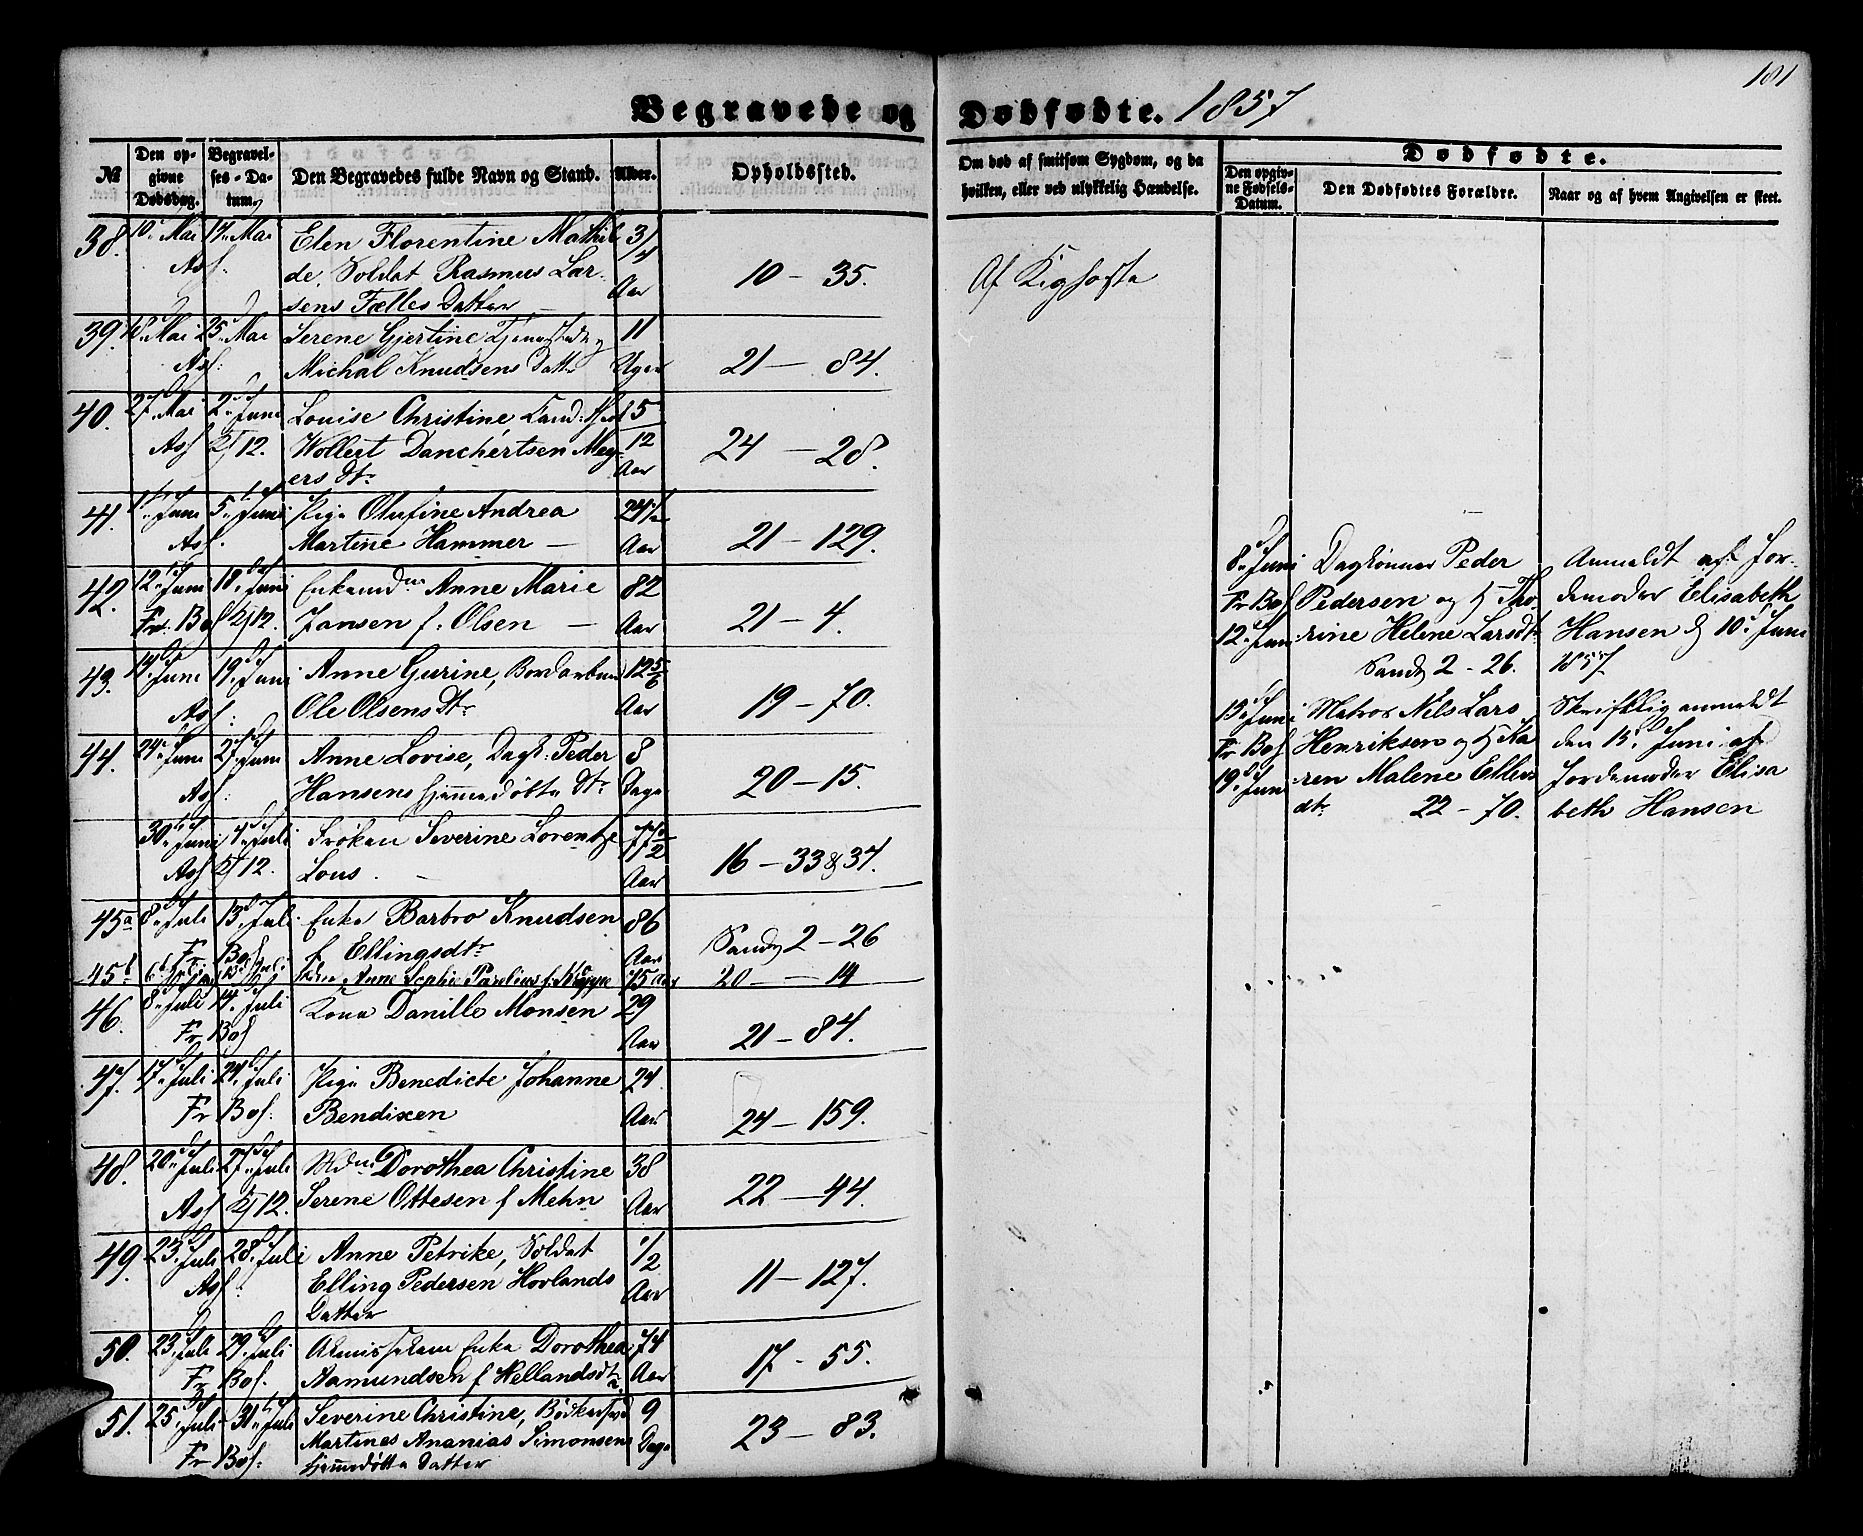 181
Begravede og Dødfødte. 1857
№ Den opgivne Dødsdag. Begravelses-Datum. Den Begravedes fulde Navn og Stand. Alder. Opholdssted.
Om død af smitsom Sygdom, og da hvilken, eller ved ulykkelig Hændelse.
Dødfødte.
Den opgivne Fødsels-Datum. Den Dødfødtes Forældre. Naar og af hvem Angivelsen er skeet.
38. 10 Mai Mai Elen Florentine Mathil- 3/4
de, Soldat Rasmus Lar- Aar 10 - 35. Af Kighoste
sens Fælles Datter
39. 18 Mai 25 Mai Serene Gjertine 11
Michal Knudsens Datter Uger 21 - 84.
40. 27 Mai 2 Juni Louise Christine 5/12
Wollert Danchertsen Mey- Aar 24 - 28.
ers Dtr
41. 1 Juni 5 Juni Pige Olufine Andrea 24 1/2
Martine Hammer Aar 21 - 129.
42. 12 Juni 18 Juni Enkemdm Anne Marie 82
Fr. Bof Jansen f. Olsen Aar 21 - 4.
43. 14 Juni 19 Juni Anne Gurine, 12 5/6
Ole Olsens Dtr Aar 19 - 70.
44. 24 Juni 27 Juni Anne Lovise, Dagl. Peder 8
Hansens Hjemmedøbte Dtr Dage 20 - 15.
30 Juni 4 Juli Frøken Severine Lorentze 77 1/2
Lous Aar 16 - 33 & 37.
45a 8 Juli 13 Juli Enke Barbro Knudsen 86
Fr. Bof f Ellingsdtr Aar Sandv 2 - 26
45b Anne Sophie 75 Aar 20 - 14
46. 8 Juli 14 Juli Kone Danille Monsen 29
Fr Bof Aar 21 - 84.
47. 17 Juli 24 Juli Pige Benedicte Johanne 24
Fr Bof: Bendixen Aar 24 - 159.
48. 20 Juli 27 Juli Mdm Dorothea Christine 38
Serene Ottesen f Mehn Aar 22 - 44.
49. 23 Juli 28 Juli Anne Petrike, Soldat 1/2
Elling Pedersen Hovlands Aar 11 - 127.
Datter
50. 23 Juli 29 Juli Enke Dorothea 74
Fr Bof. Aamundsen f Hellandsdtr Aar 17 - 55.
51. 25 Juli 31 Juli Severine Christine, 9
Fr Bof: Martines Ananias Simonsens Dage 23 - 83.
Hjemmedøbte Datter
8 Juni Daglønner Peder Anmeldt af Jor-
Fr Bof Pedersen og H Tho- demoder Elisabeth
12 Juni rine Helene Larsdtr Hansen d 10 Juni
Sandv 2 - 26. 1857.
15 Juni Matros Nils Lars Skriftlig anmeldt
Fr Bof Henriksen og H Ka den 15 Juni af
19 Juni ren Malene Ellens Jordemoder Elisa
dtr 22 - 70. beth Hansen